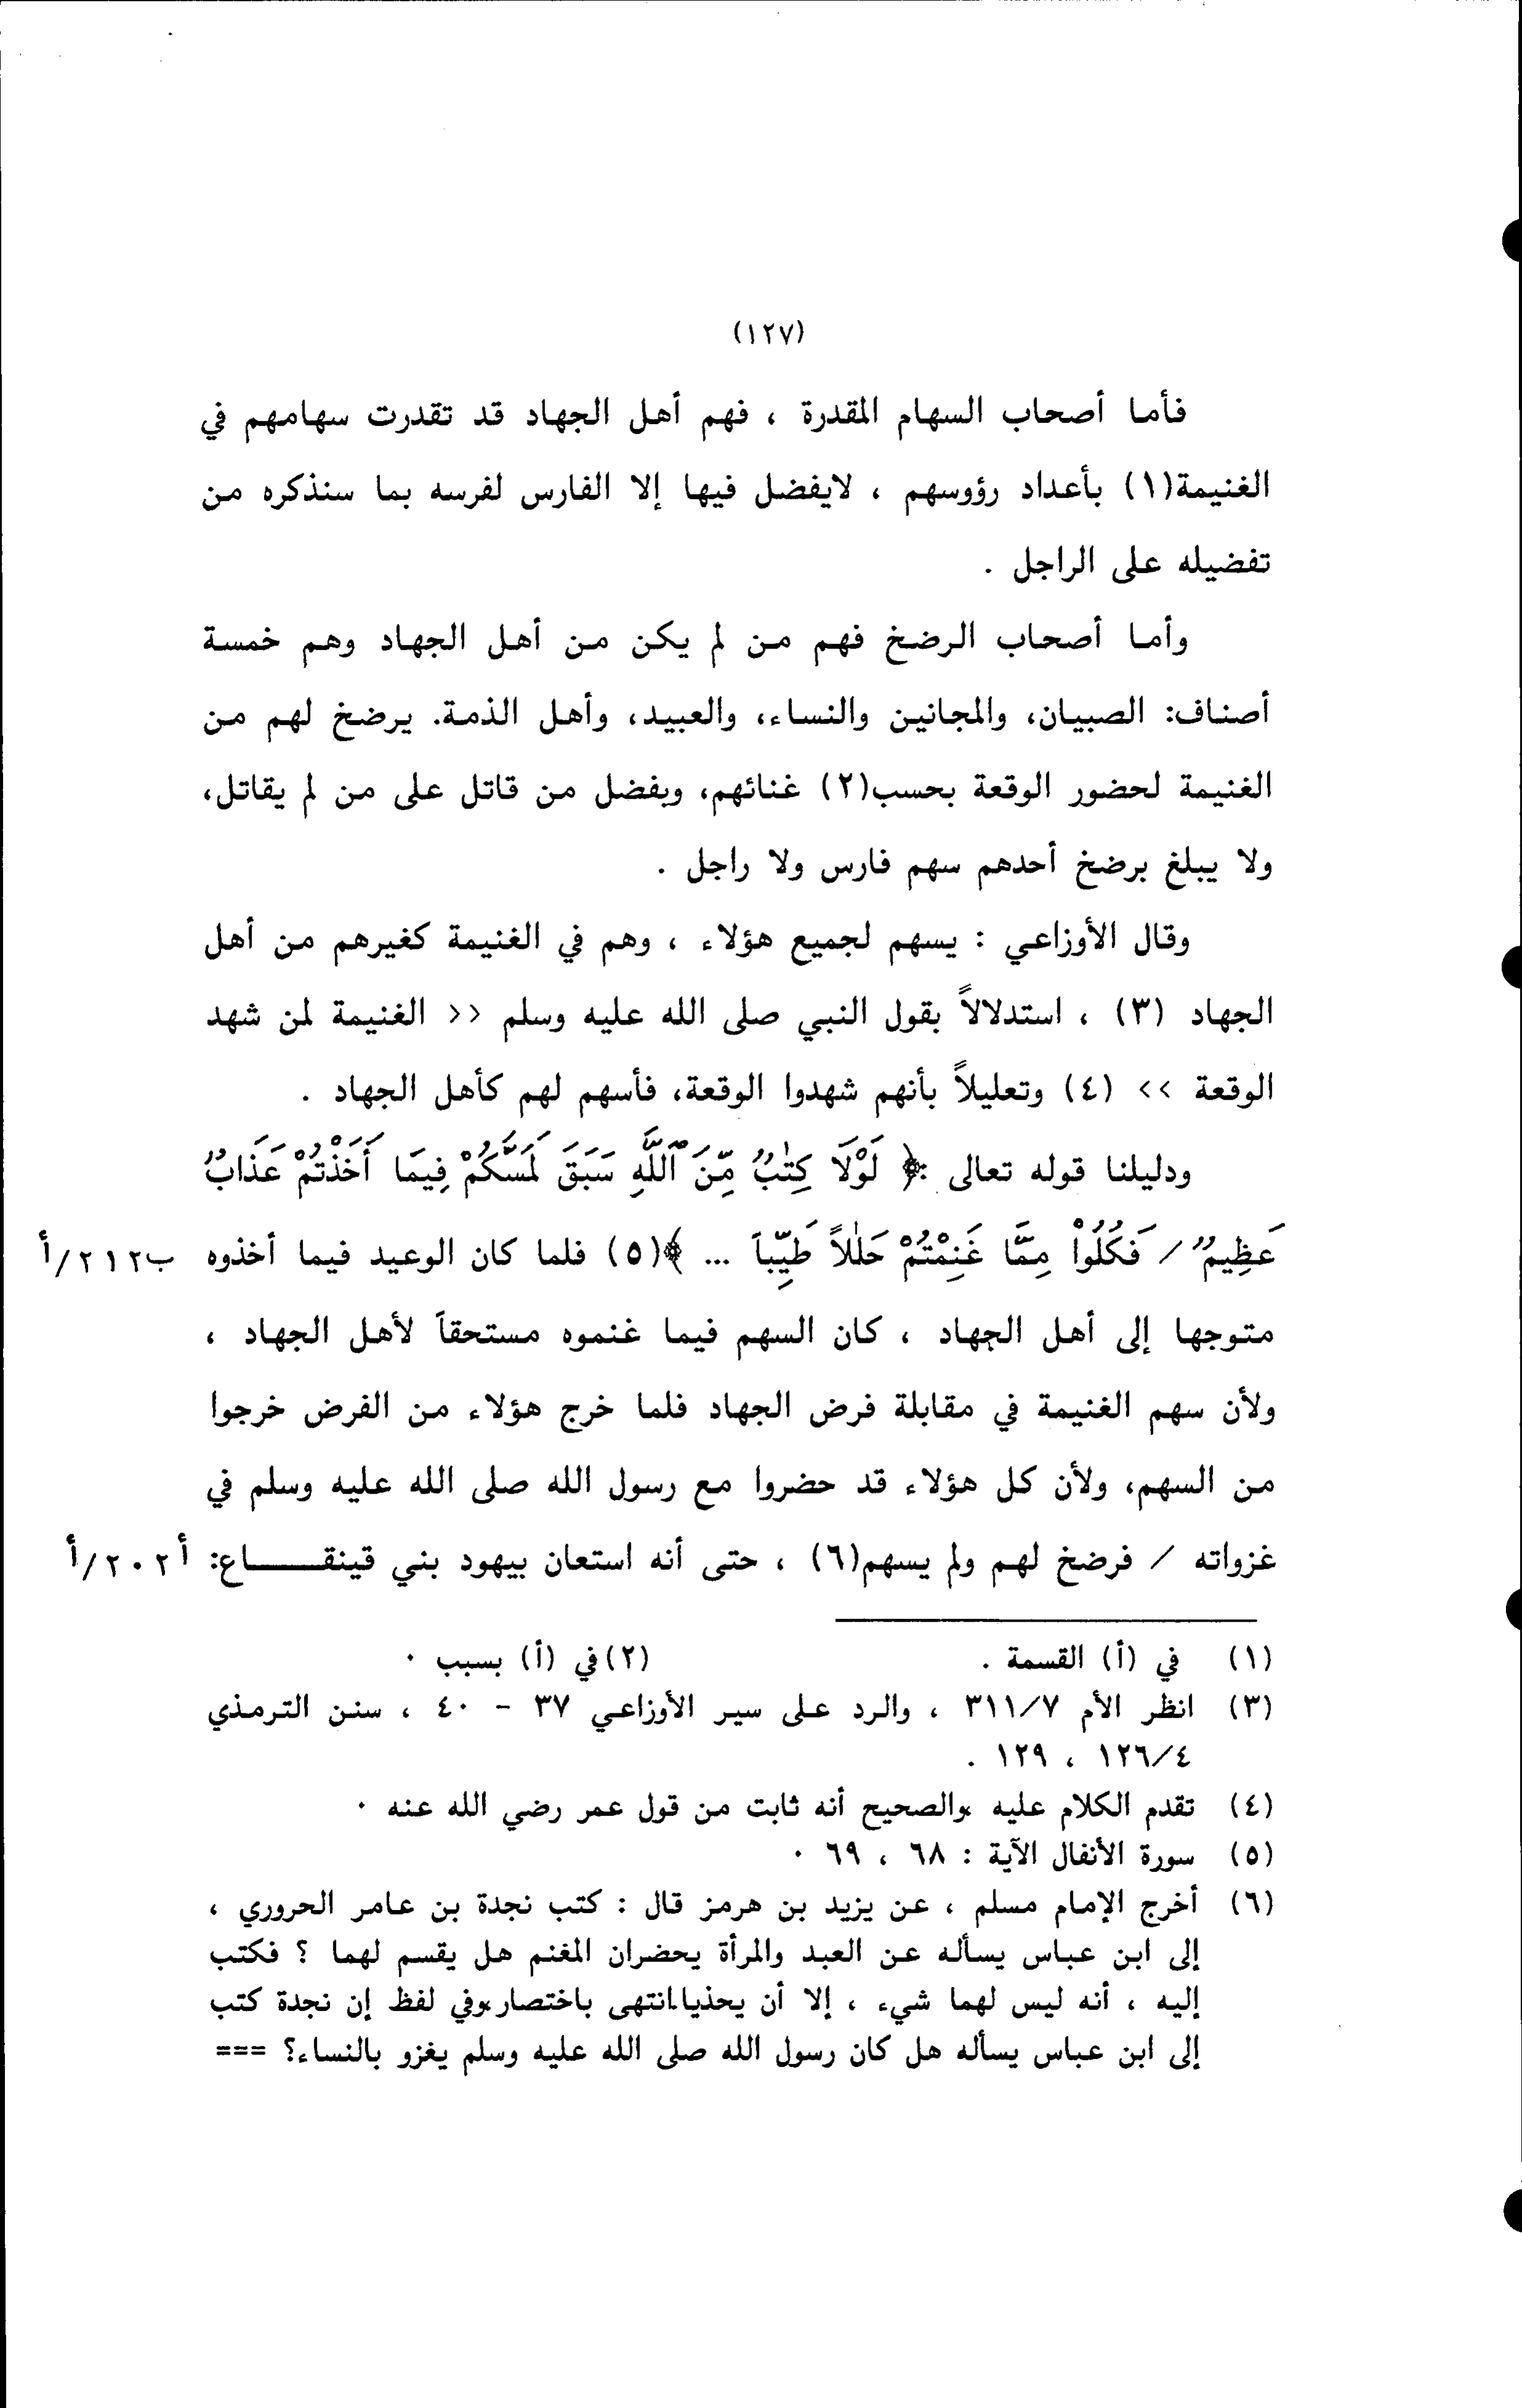 (١٢٧)
فأما أصحاب السهام المقدرة ، فهم أهل الجهاد قد تقدرت سهامهم في
الغنيمة(١) بأعداد رؤوسهم ، لايفضل فيها إلا الفارس لفرسه بما سنذكره من
تفضيله على الراجل .
وأما أصحاب الرضخ فهم من لم يكن من أهل الجهاد وهم خمسة
أصناف: الصبيان، والمجانين والنساء، والعبيد، وأهل الذمة. يرضخ لهم من
الغنيمة لحضور الوقعة بحسب(٢) غنائهم، ويفضل من قاتل على من لم يقاتل،
ولا يبلغ برضخ أحدهم سهم فارس ولا راجل .
وقال الأوزاعي : يسهم لجميع هؤلاء ، وهم في الغنيمة كغيرهم من أهل
الجهاد (٣) ، استدلالاً بقول النبي صلى الله عليه وسلم << الغنيمة لمن شهد
الوقعة >> (٤) وتعليلاً بأنهم شهدوا الوقعة، فأسهم لهم كأهل الجهاد .
ودليلنا قوله تعالى :﴿ لَوْلَا كِتَٰبٌ مِّنَ ٱللَّهِ سَبَقَ لَمَسَّكُمْ فِيمَا أَخَذْتُمْ عَذَابٌ
عَظِيمٌ / فَكُلُوْا مِمَّا غَنِمْتُمْ حَلَٰلاً طَيِّباً ... ﴾(٥) فلما كان الوعيد فيما أخذوه ب٢١٢/أ
متوجها إلى أهل الجهاد ، كان السهم فيما غنموه مستحقاً لأهل الجهاد ،
ولأن سهم الغنيمة في مقابلة فرض الجهاد فلما خرج هؤلاء من الفرض خرجوا
من السهم، ولأن كل هؤلاء قد حضروا مع رسول الله صلى الله عليه وسلم في
غزواته / فرضخ لهم ولم يسهم(٦) ، حتى أنه استعان بيهود بني قينقـــــاع: أ٢٠٢/أ
(١) في (أ) القسمة . (٢) في (أ) بسبب .
(٣) انظر الأم ٣١١/٧ ، والرد على سير الأوزاعي ٣٧ - ٤٠ ، سنن الترمذي
١٢٦/٤ ، ١٢٩ .
(٤) تقدم الكلام عليه والصحيح أنه ثابت من قول عمر رضي الله عنه .
(٥) سورة الأنفال الآية : ٦٨ ، ٦٩ .
(٦) أخرج الإمام مسلم ، عن يزيد بن هرمز قال : كتب نجدة بن عامر الحروري ،
إلى ابن عباس يسأله عن العبد والمرأة يحضران المغنم هل يقسم لهما ؟ فكتب
إليه ، أنه ليس لهما شيء ، إلا أن يحذيا.انتهى باختصار،وفي لفظ إن نجدة كتب
إلى ابن عباس يسأله هل كان رسول الله صلى الله عليه وسلم يغزو بالنساء؟ ===